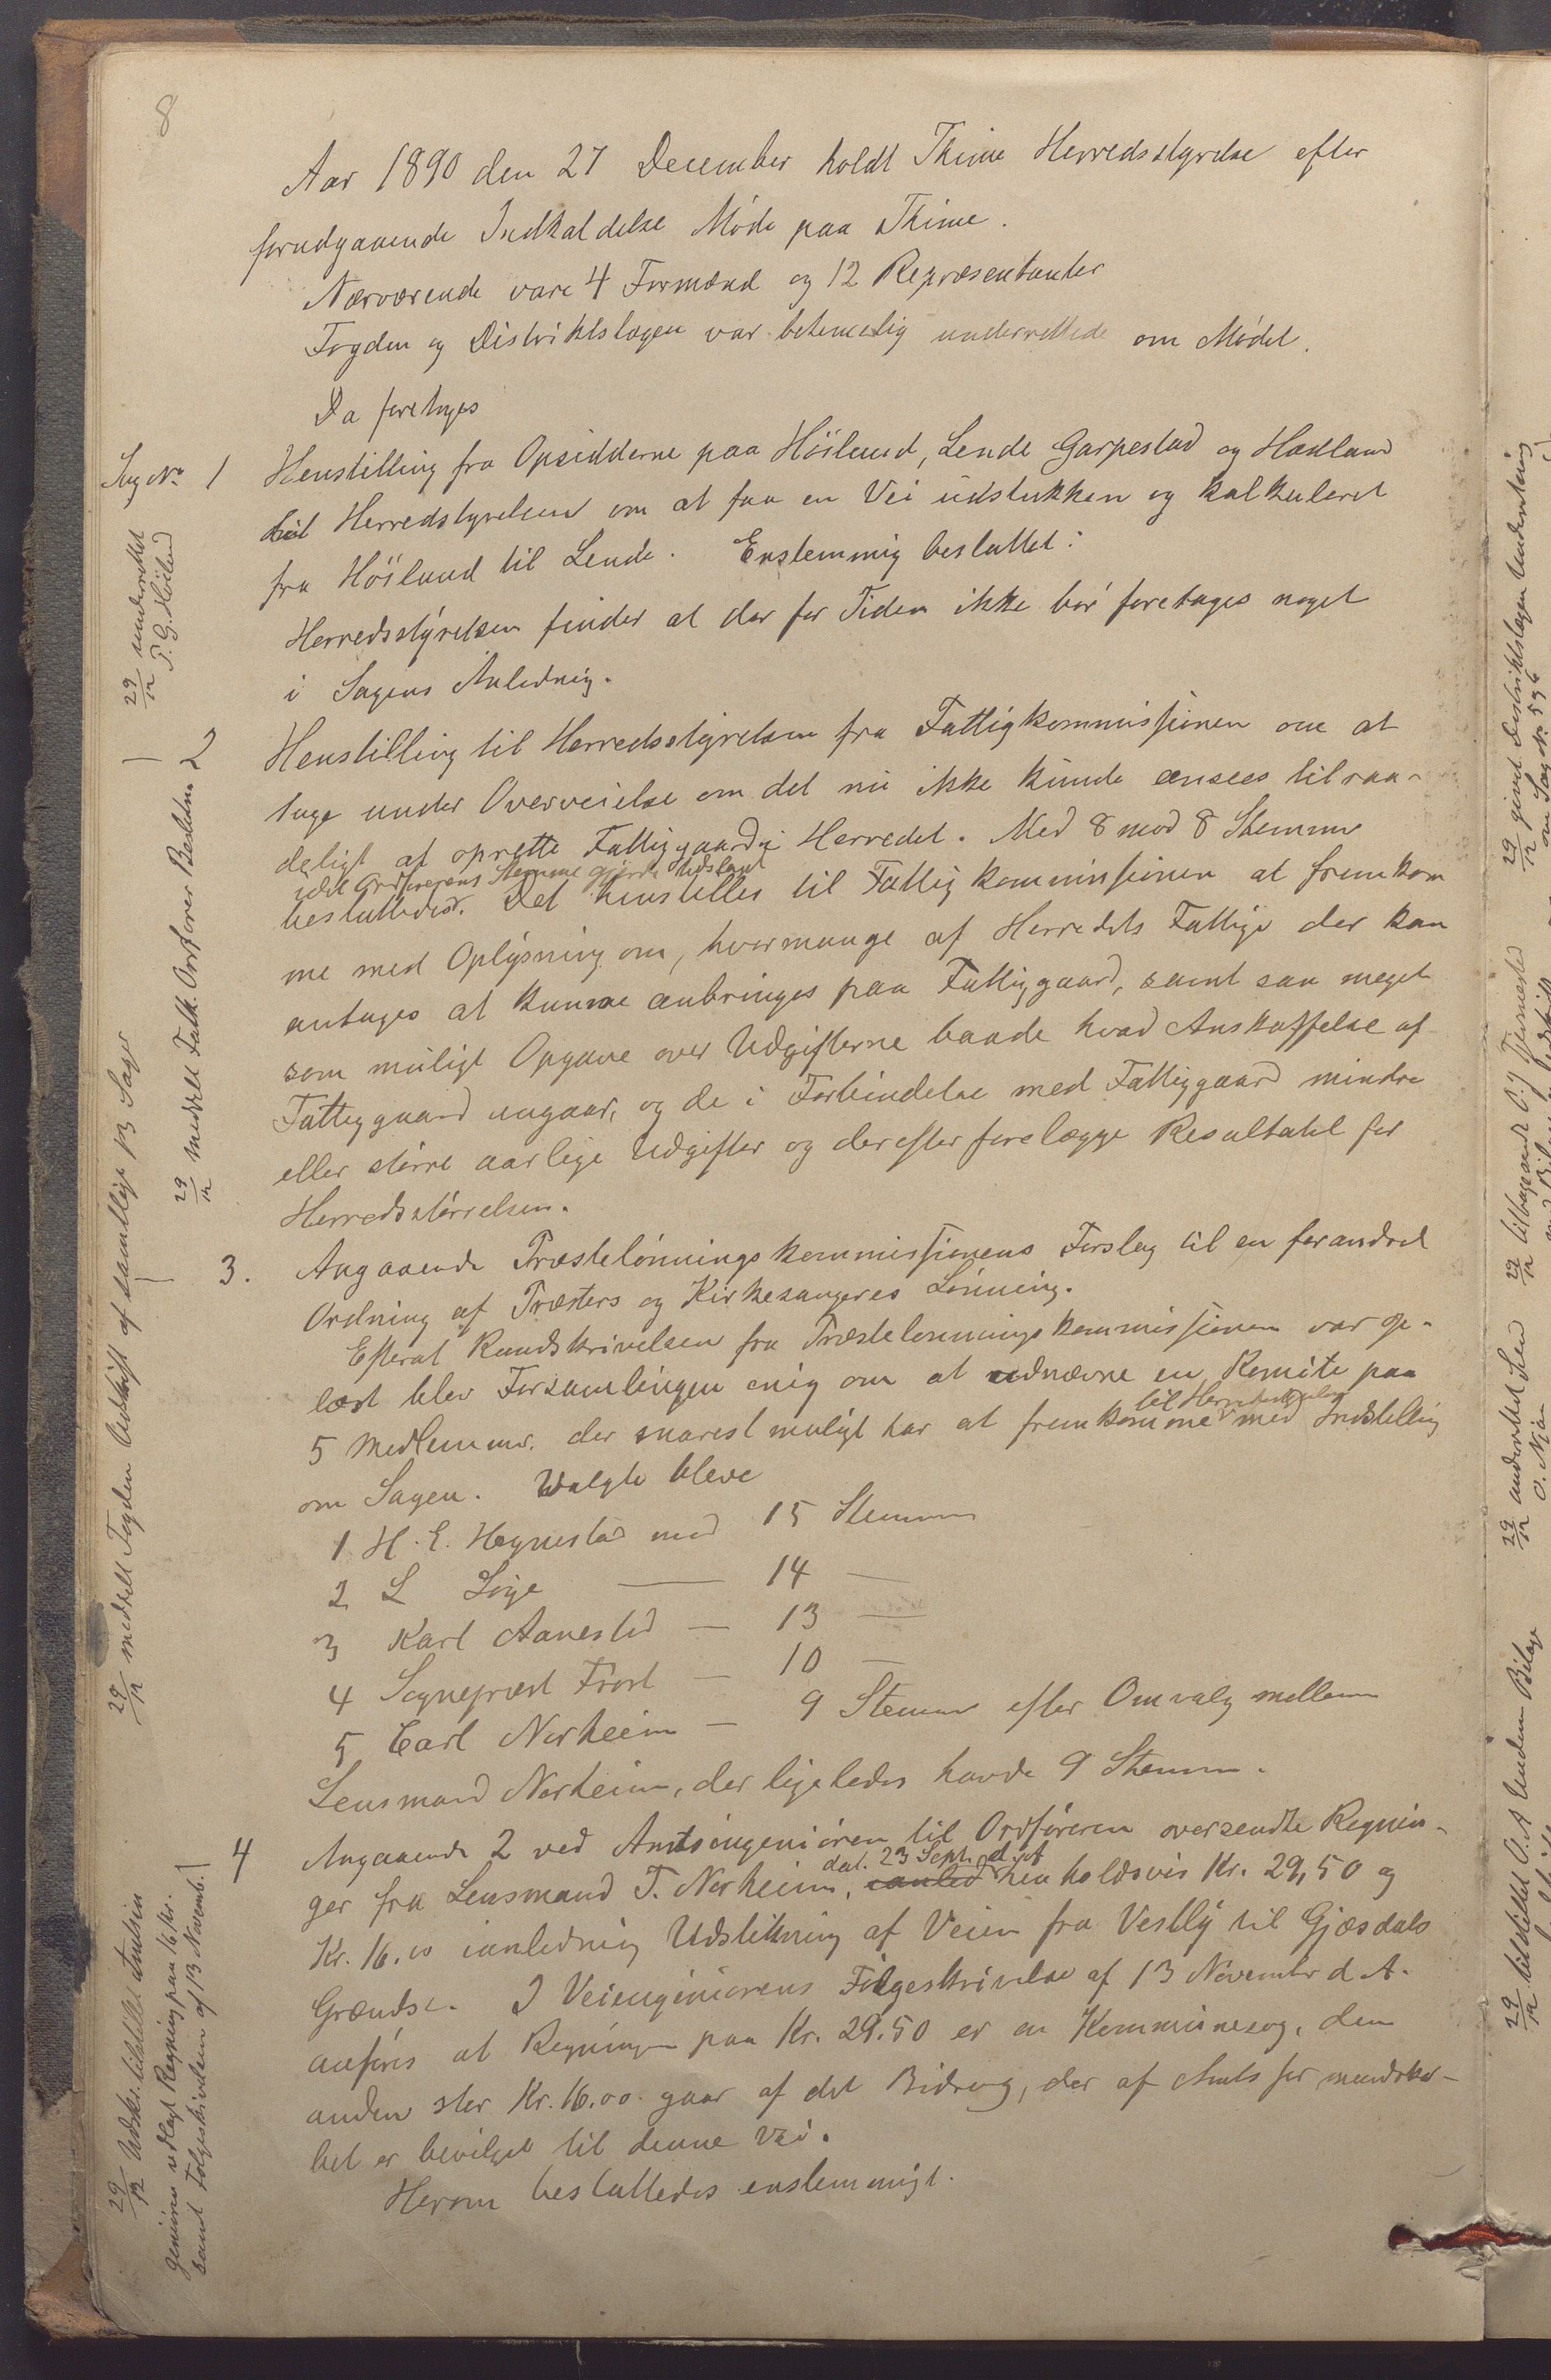 8
Aar 1890 den 27 December holdt Thime Herredsstyrelse efter
forudgaaende Indkaldelse Møde paa Thime.
Nærværende vare 4 Formænd og 12 Repræsentanter
Fogden og Distriktslægen var betimelig underrettede om Mødet.
Da foretoges
Sag No 1 Henstilling fra Opsidderne paa Höiland, Lende Garpestad og Hadland
til Herredstyrelsen om at faa en Vei udstukken og kalkuleret
fra Höiland til Lende. Enstemmig besluttet:
Herredsstyrelsen finder at der for Tiden ikke bør foretages noget
i Sagens Anledning.
29/12 underrettet
T. G. Höiland
2 Henstilling til Herredsstyrelsen fra Fattigkommissionen om at
tage under Overveielse om det nu ikke kunde ansees tilraa-
deligt at oprette Fattiggaard i Herredet. Med 8 mod 8 Stemmer
idet Ordførerens Stemme gjorde Udslaget
besluttedes. Det henstilles til Fattigkommissionen at fremkom
me med Oplysning om, hvormange af Herredets Fattige der kan
antages at kunne anbringes paa Fattiggaard, samt saa meget
som muligt Opgave over Udgifterne baade hvad Anskaffelse af
Fattiggaard angaar, og de i Forbindelse med Fattiggaard mindre
eller större aarlige Udgifter og derefter forelægge Resultatet for
Herredsstyrelsen.
29/12 meddelt Fattk. Ordfører Beslutn
3. Angaaende Præstelønningskommissionens Forslag til en forandret
Ordning af Præsters og Kirkesangeres Lønning.
Efterat Rundskrivelsen fra Præstelønningskommissionen var op-
læst blev Forsamlingen enig om at udnævne en Komite paa
5 Medlemmer, der snarest muligt har at fremkomme til Herredsstyrelsen med Indstilling
om Sagen. Valgte bleve
1 H. E. Hognestad med 15 Stemmer
2 L Löge — 14 —
3 Karl Aanestad — 13 —
4 Sognepræst Frost — 10 —
5 Carl Norheim — 9 Stemmer efter Omvalg mellem
Lensmand Norheim, der ligeledes havde 9 Stemmer.
29/12 meddelt Fogden Udskrift af samtlige 13 Sager
4 Angaaende 2 ved Amtsingeniøren til Ordføreren oversendte Regnin-
ger fra Lensmand T. Norheim, dat. 23 Sept. d. A. henholdsvis Kr. 29,50 og
Kr. 16.00 ianledning Udstikning af Veien fra Vestly til Gjæsdals
Grændse. I Veiingeniørens Følgeskrivelse af 13 November d. A.
anføres at Regningen paa Kr. 29.50 er en Kommunesag, den
anden stor Kr. 16.00 gaar af det Bidrag, der af Amtsformandska-
bet er bevilget til denne Vei.
Herom besluttedes enstemmigt.
29/12 Udskr. tilstillet Amtsin
geniøren vedlagt Regning paa 16 Kr.
samt Følgeskrivelsen af 13 Novemb.
29/12 givet Distriktslægen Underretning
om Sag No 5 & 6
29/12 underrettet
O. Njaa
29/12 tilstillet O. A Undem Bilage